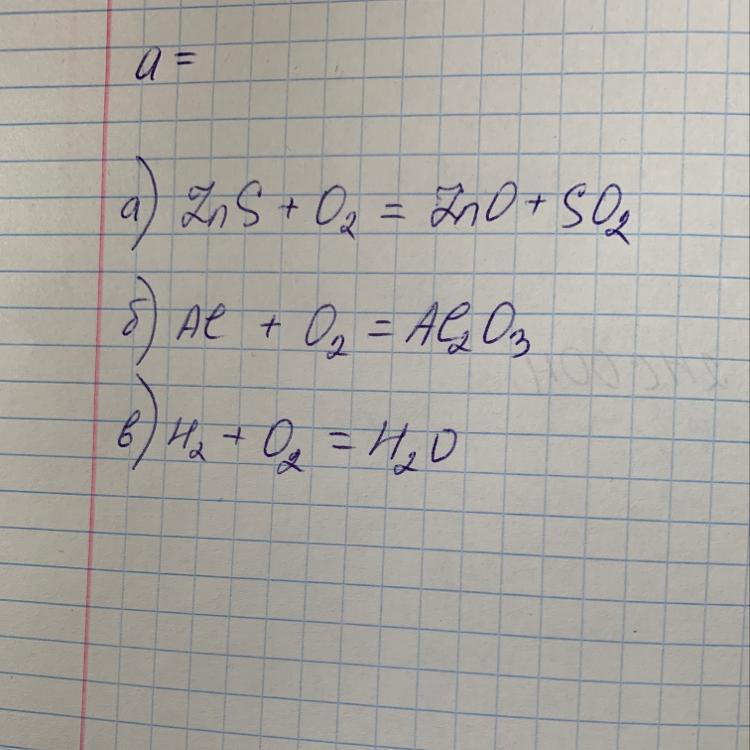 a =
а) ZnS + O₂ = ZnO + SO₂
б) Al + O₂ = Al₂O₃
в) H₂ + O₂ = H₂O